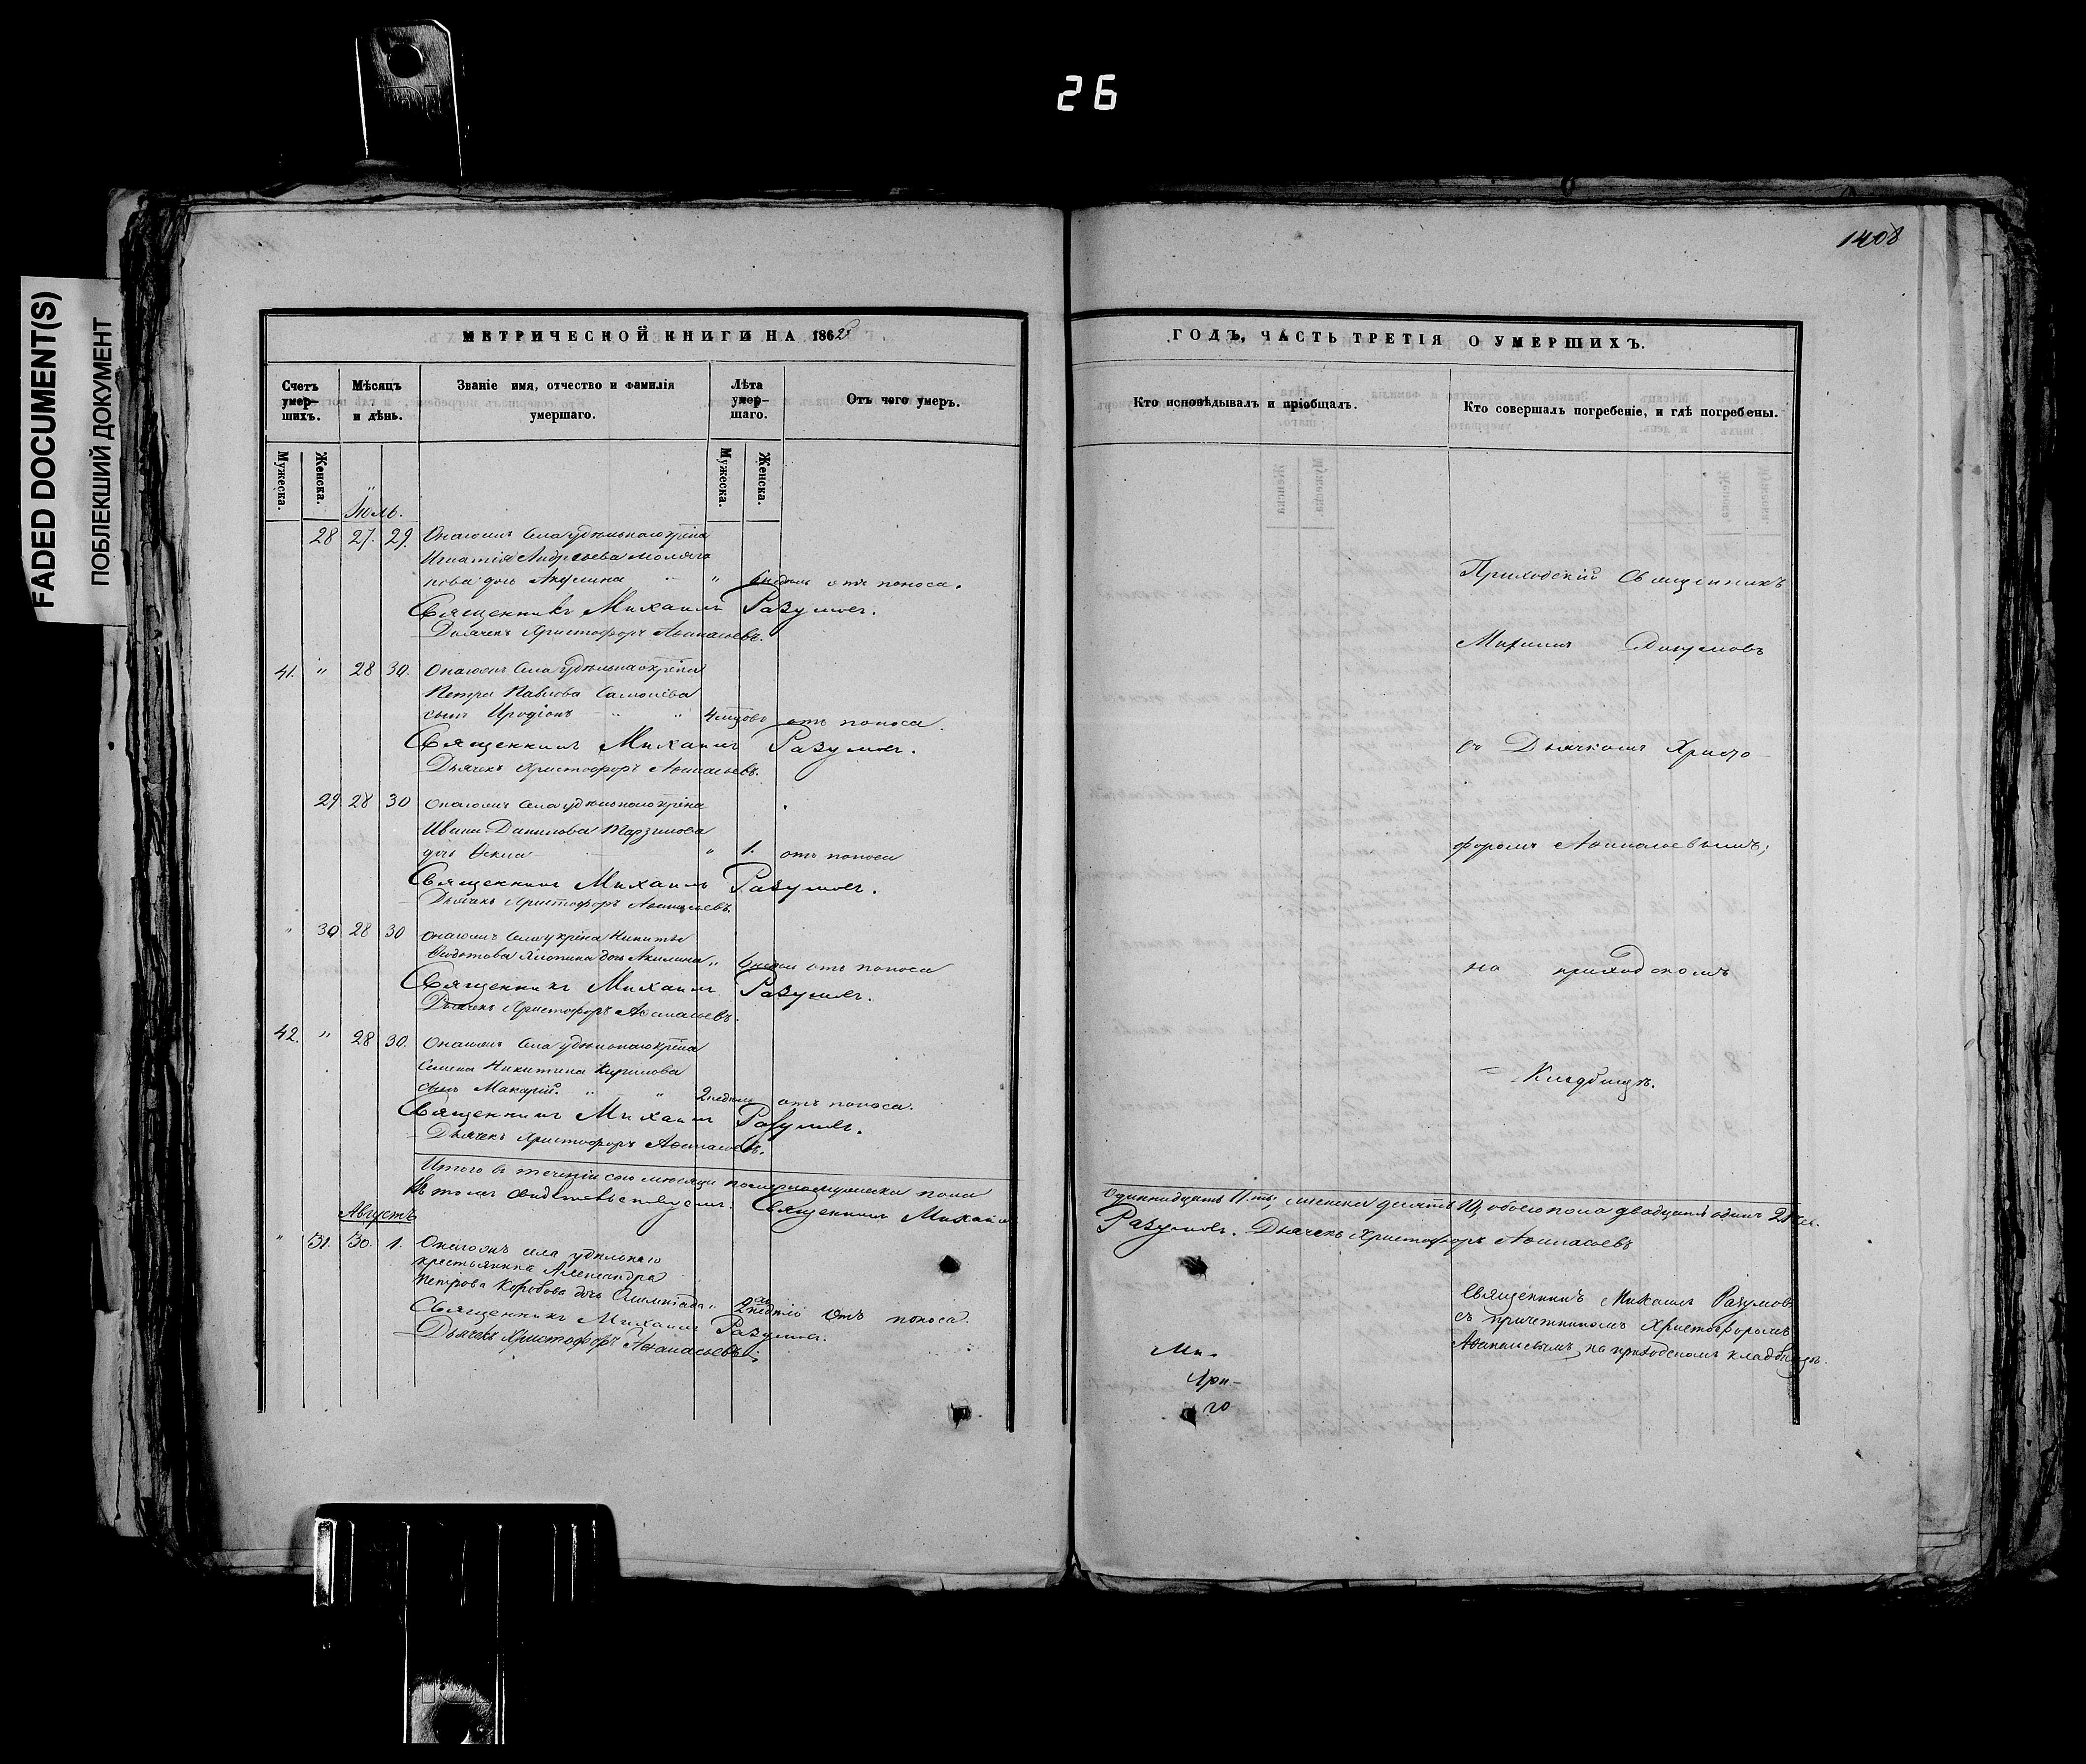 26
1408
FADED DOCUMENT(S)
ПОБЛЕКШИЙ ДОКУМЕНТ
МЕТРИЧЕСКОЙ КНИГИ НА 1862
Счетъ умер-шихъ.
Мѣсяцъ и дѣнь.
Званіе имя, отчество и фамилія умершаго.
Лѣта умер-шаго.
Отъ чего умеръ.
Мужеска.
Женска.
Мужеска.
Женска.
Іюль.
28 27. 29. Онагожъ села удѣльнаго крѣна
Игнатія Андреева
дочь Акулина " отъ поноса.
Священникъ Михаилъ Разумовъ.
Дьячекъ Христофоръ Аѳанасьевъ.
41. " 28 30. Онагожъ села удѣльнаго крѣна
Петра Павлова
сынъ Иродіонъ " " отъ поноса.
Священникъ Михаилъ Разумовъ.
Дьячекъ Христофоръ Аѳанасьевъ.
29 28 30 Онагожъ села удѣльнаго крѣна
Ивана Данилова
дочь " 1. отъ поноса
Священникъ Михаилъ Разумовъ.
Дьячекъ Христофоръ Аѳанасьевъ.
" 30 28 30 Онагожъ села у крѣна Никиты
дочь Акилина " отъ поноса
Священникъ Михаилъ Разумовъ.
Дьячекъ Христофоръ Аѳанасьевъ.
42. " 28 30. Онагожъ села удѣльнаго крѣна
Семена Никитина Кирилова
сынъ Макарій. " " 2 недѣль отъ поноса.
Священникъ Михаилъ Разумовъ.
Дьячекъ Христофоръ Аѳанасьевъ.
Итого въ теченіи сего мѣсяца померло мужеска пола
Въ томъ свидѣтельствуемъ: Священникъ Михаилъ
Августъ
" 31. 30. 1. Онагожъ села удѣльнаго
крестьянина Александра
Петрова Коробова дочь Олимпіада " 2 недѣли отъ поноса.
Священникъ Михаилъ Разумовъ.
Дьячекъ Христофоръ Аѳанасьевъ.
ГОДЪ, ЧАСТЬ ТРЕТІЯ О УМЕРШИХЪ.
Кто исповѣдывалъ и пріобщалъ.
Кто совершалъ погребеніе, и гдѣ погребены.
Приходскій Священникъ
Михаилъ Разумовъ
съ Дьячкомъ Христо-
форомъ Аѳанасьевымъ;
на приходскомъ
Кладбищѣ.
Одиннадцать 11-ть; женска десять 10, обоего пола двадцать одинъ 21 чел.
Разумовъ. Дьячекъ Христофоръ Аѳанасьевъ
Священникъ Михаилъ Разумовъ
съ причетникомъ Христофоромъ
Аѳанасьевымъ, на приходскомъ кладбищѣ.
Ми-
го